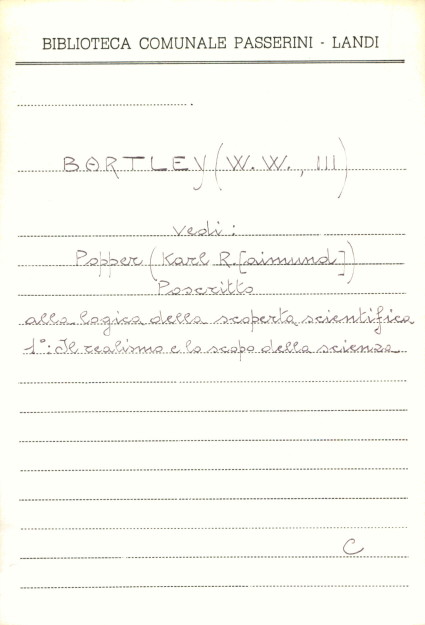 BIBLIOTECA COMUNALE PASSERINI - LANDI
BARTLEY (W. W., III)
vedi:
Popper (Karl R.[aimund])
Poscritto
alla logica della scoperta scientifica
1°: Il realismo e lo scopo della scienza
C